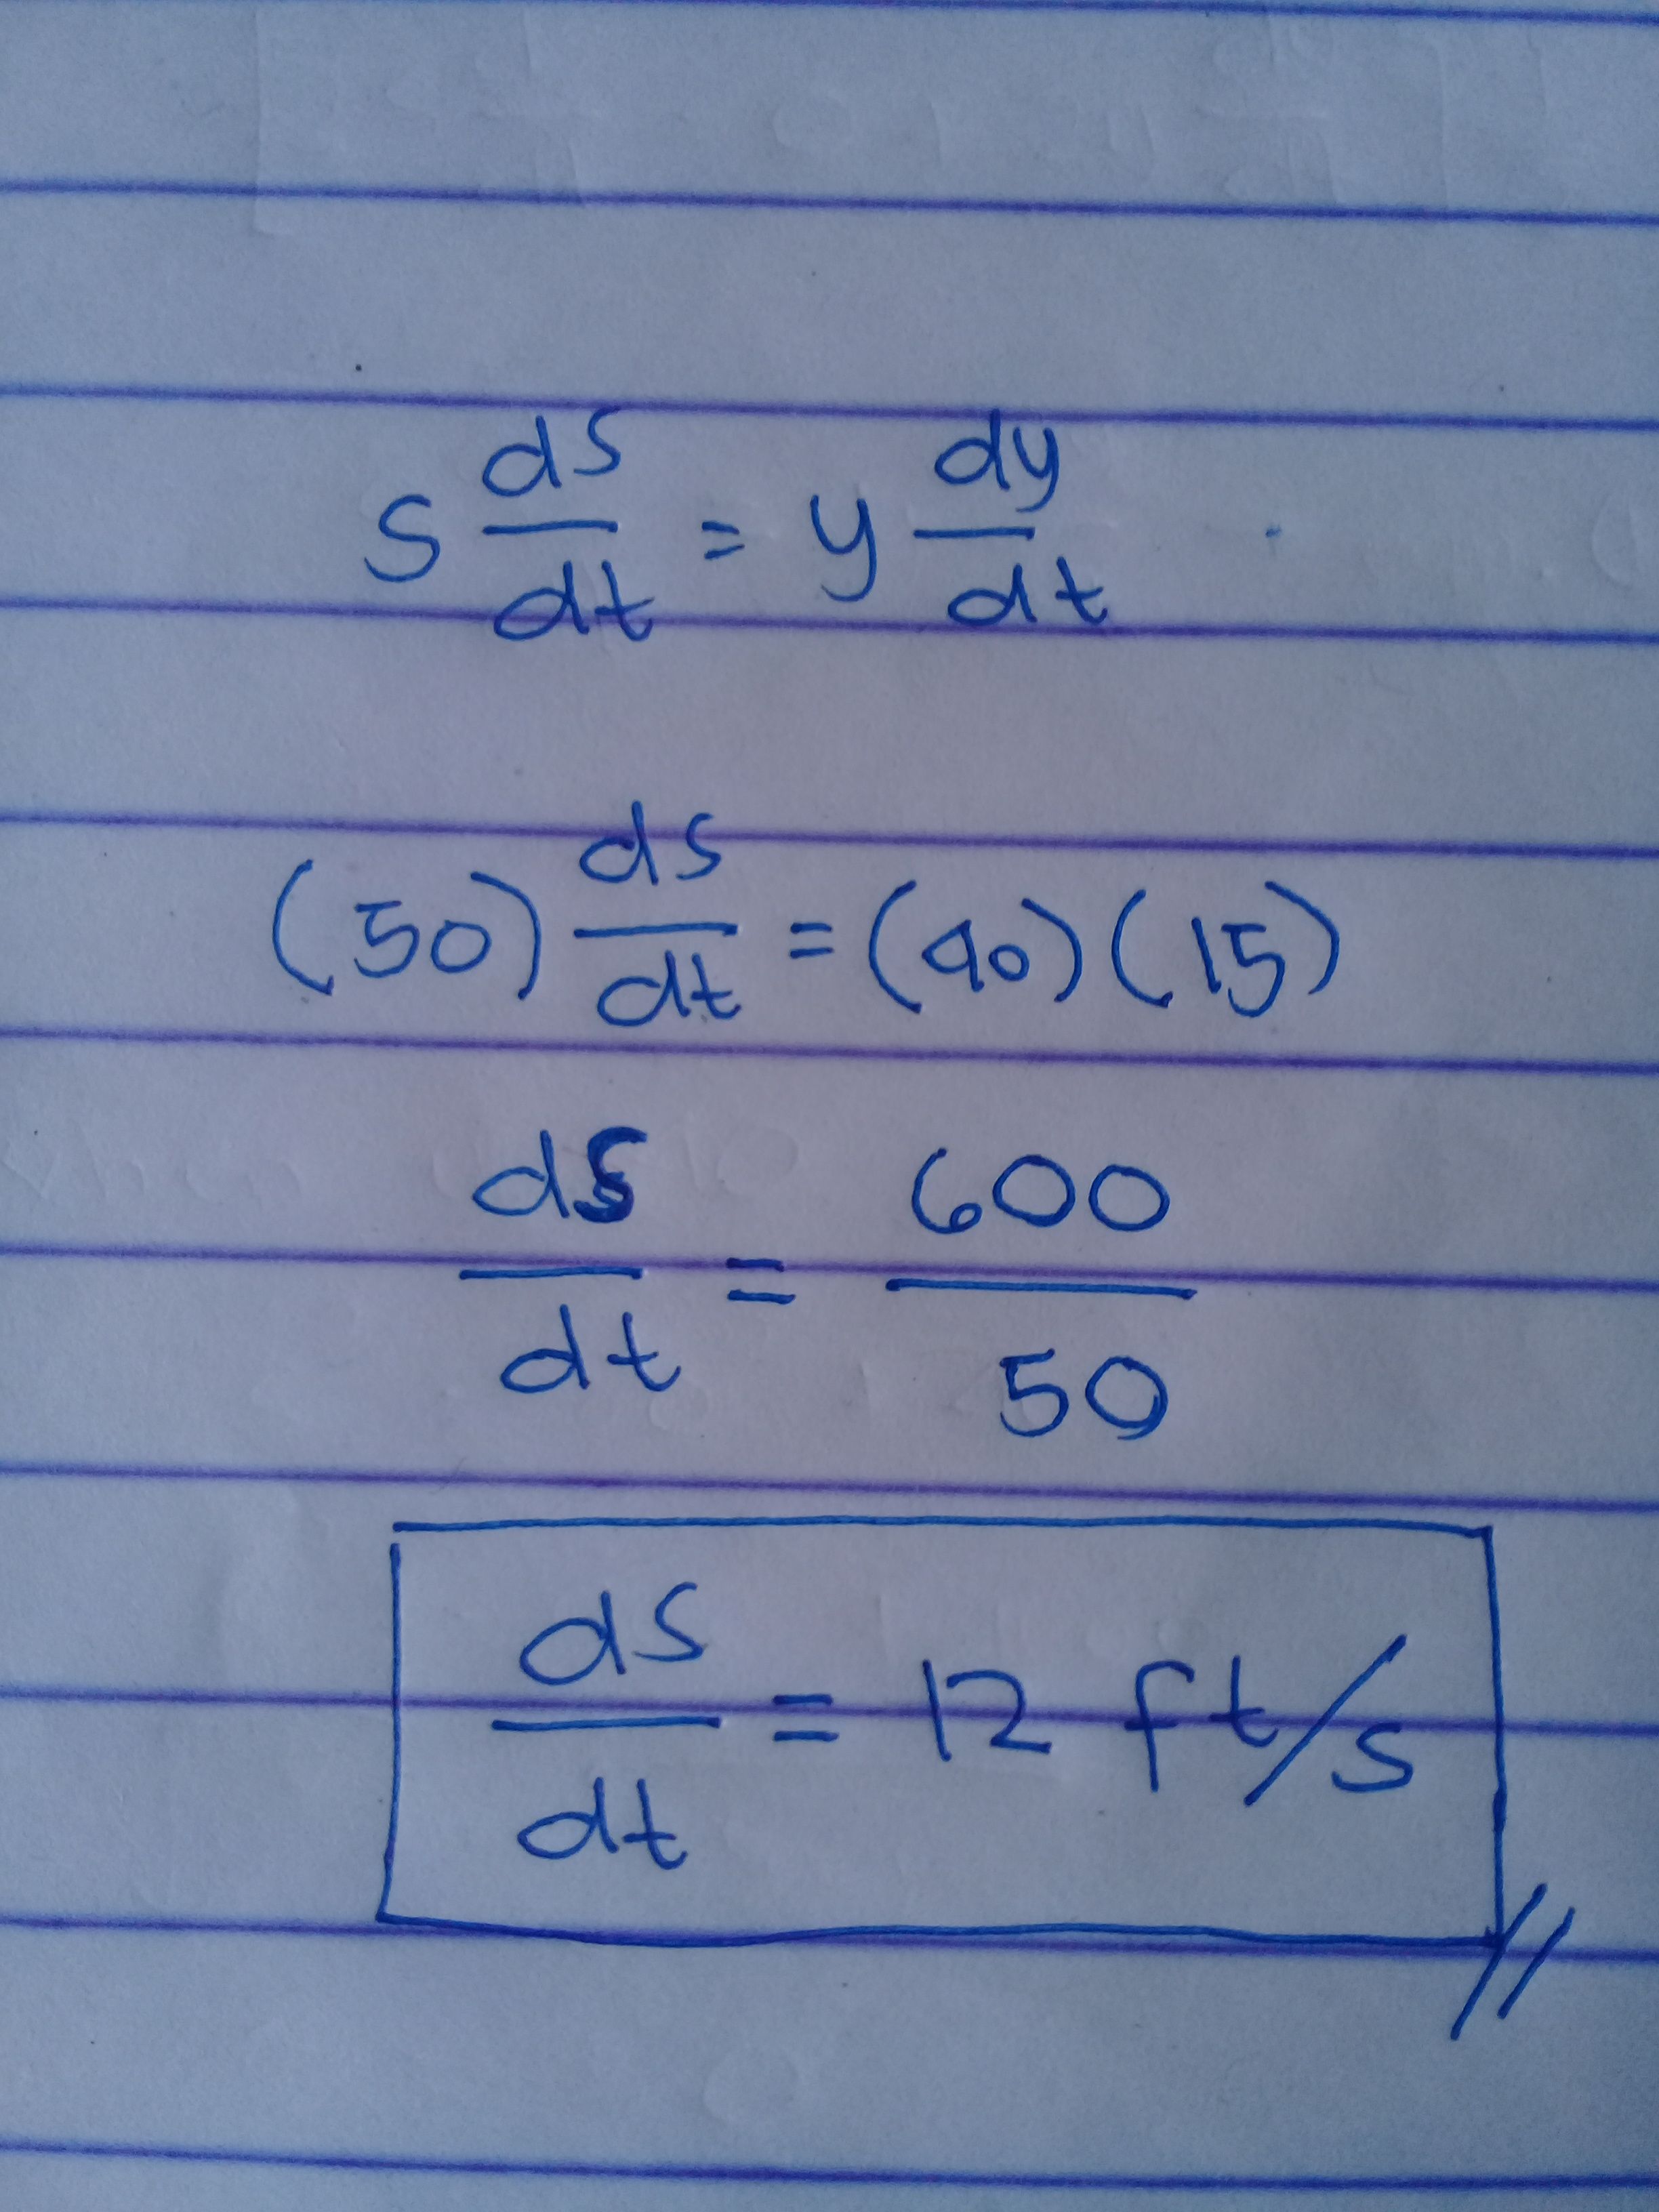 s ds/dt = y dy/dt
(50) ds/dt = (40)(15)
ds/dt = 600/50
ds/dt = 12 ft/s